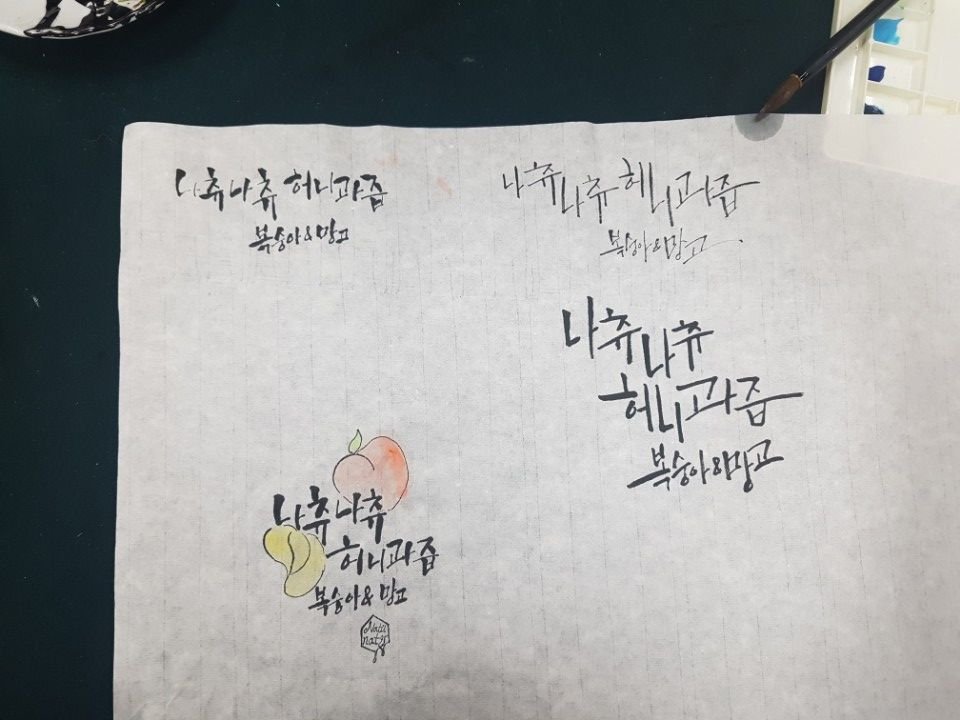 나츄나츄 허니과즙
복숭아&망고
나츄나츄 허니과즙
복숭아&망고
나츄나츄
허니과즙
복숭아&망고
나츄나츄
허니과즙
복숭아&망고